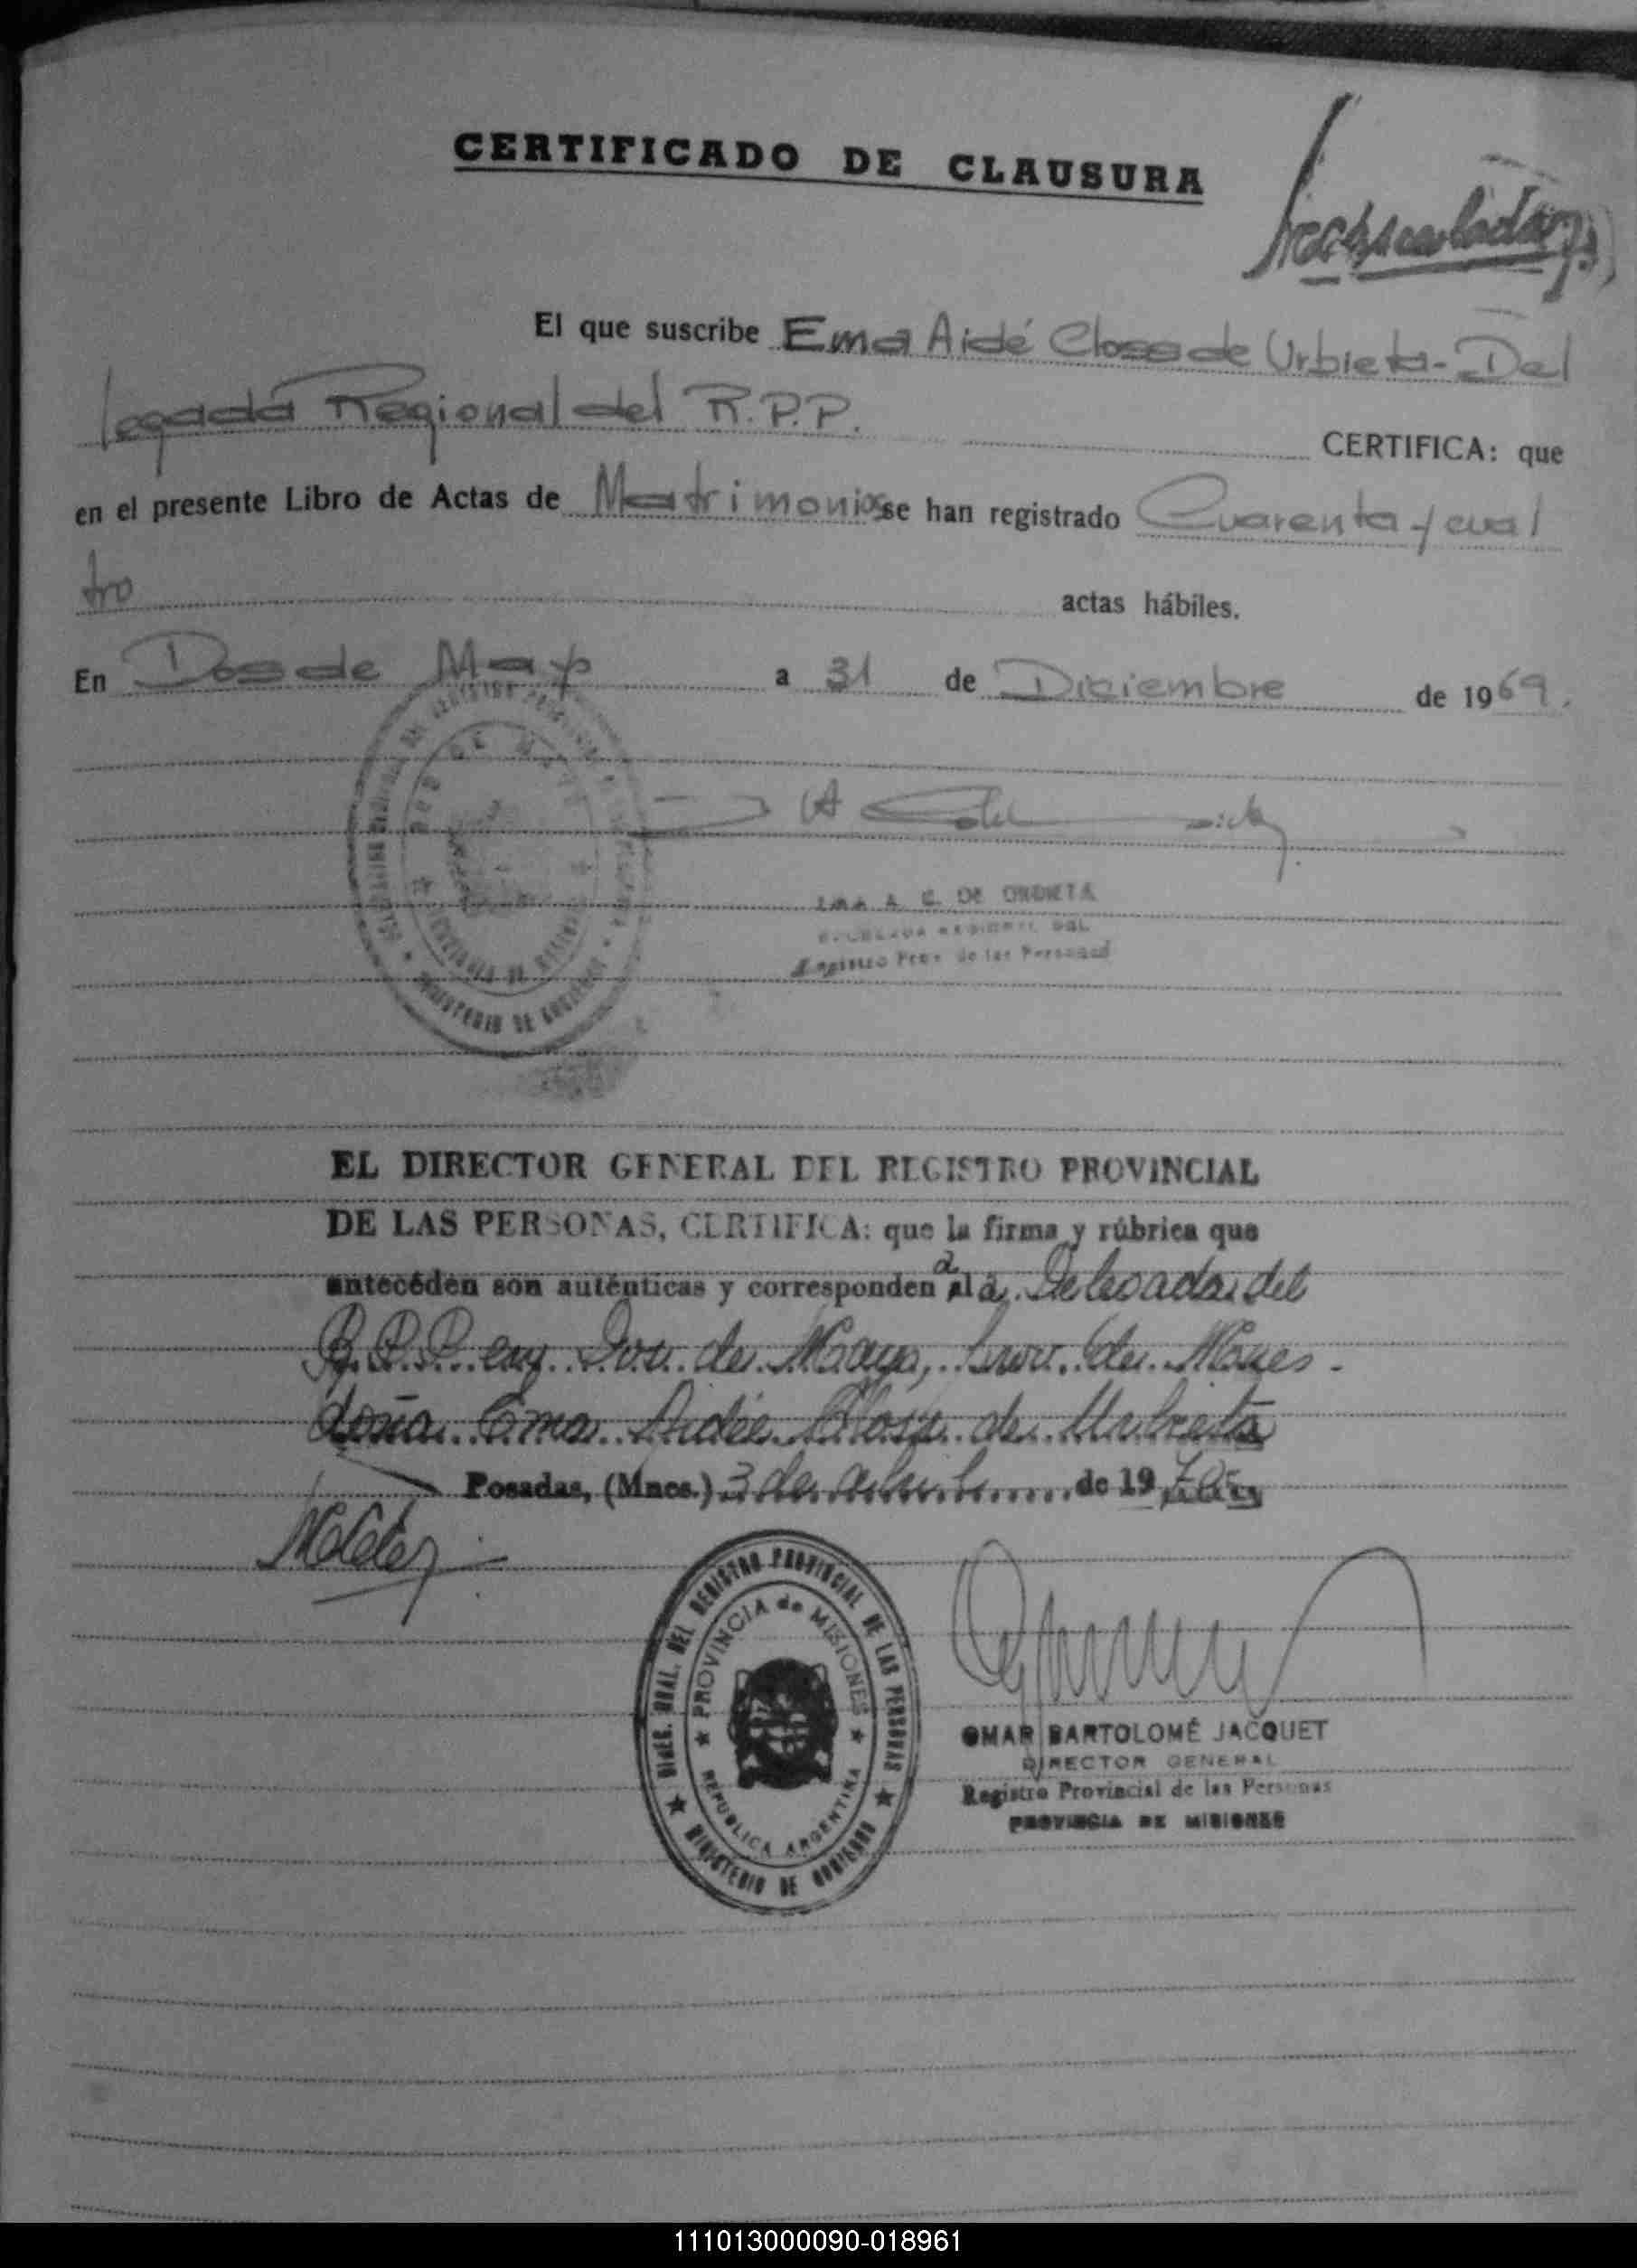 CERTIFICADO DE CLAUSURA
El que suscribe Ema Aidé Closs de Urbieta - Del
legada Regional del R.P.P. CERTIFICA: que
en el presente Libro de Actas de Matrimonios se han registrado Cuarenta y cua
tro actas hábiles.
En Dos de Mayo a 31 de Diciembre de 1969.
DE URBIETA
Registro Prov. de las Personas
EL DIRECTOR GENERAL DEL REGISTRO PROVINCIAL
DE LAS PERSONAS, CERTIFICA: que la firma y rúbrica que
anteceden son auténticas y corresponden a la Delegada del
R.P.P. en Dos de Mayo, Prov. de Mnes.
doña Ema Aidée Closs de Urbieta
Posadas, (Mnes.) 3 de de 19
DIREC. GRAL. DEL REGISTRO PROVINCIAL DE LAS PERSONAS
PROVINCIA de MISIONES
REPUBLICA ARGENTINA
MINISTERIO DE GOBIERNO
OMAR BARTOLOMÉ JACQUET
DIRECTOR GENERAL
Registro Provincial de las Personas
PROVINCIA DE MISIONES
111013000090-018961